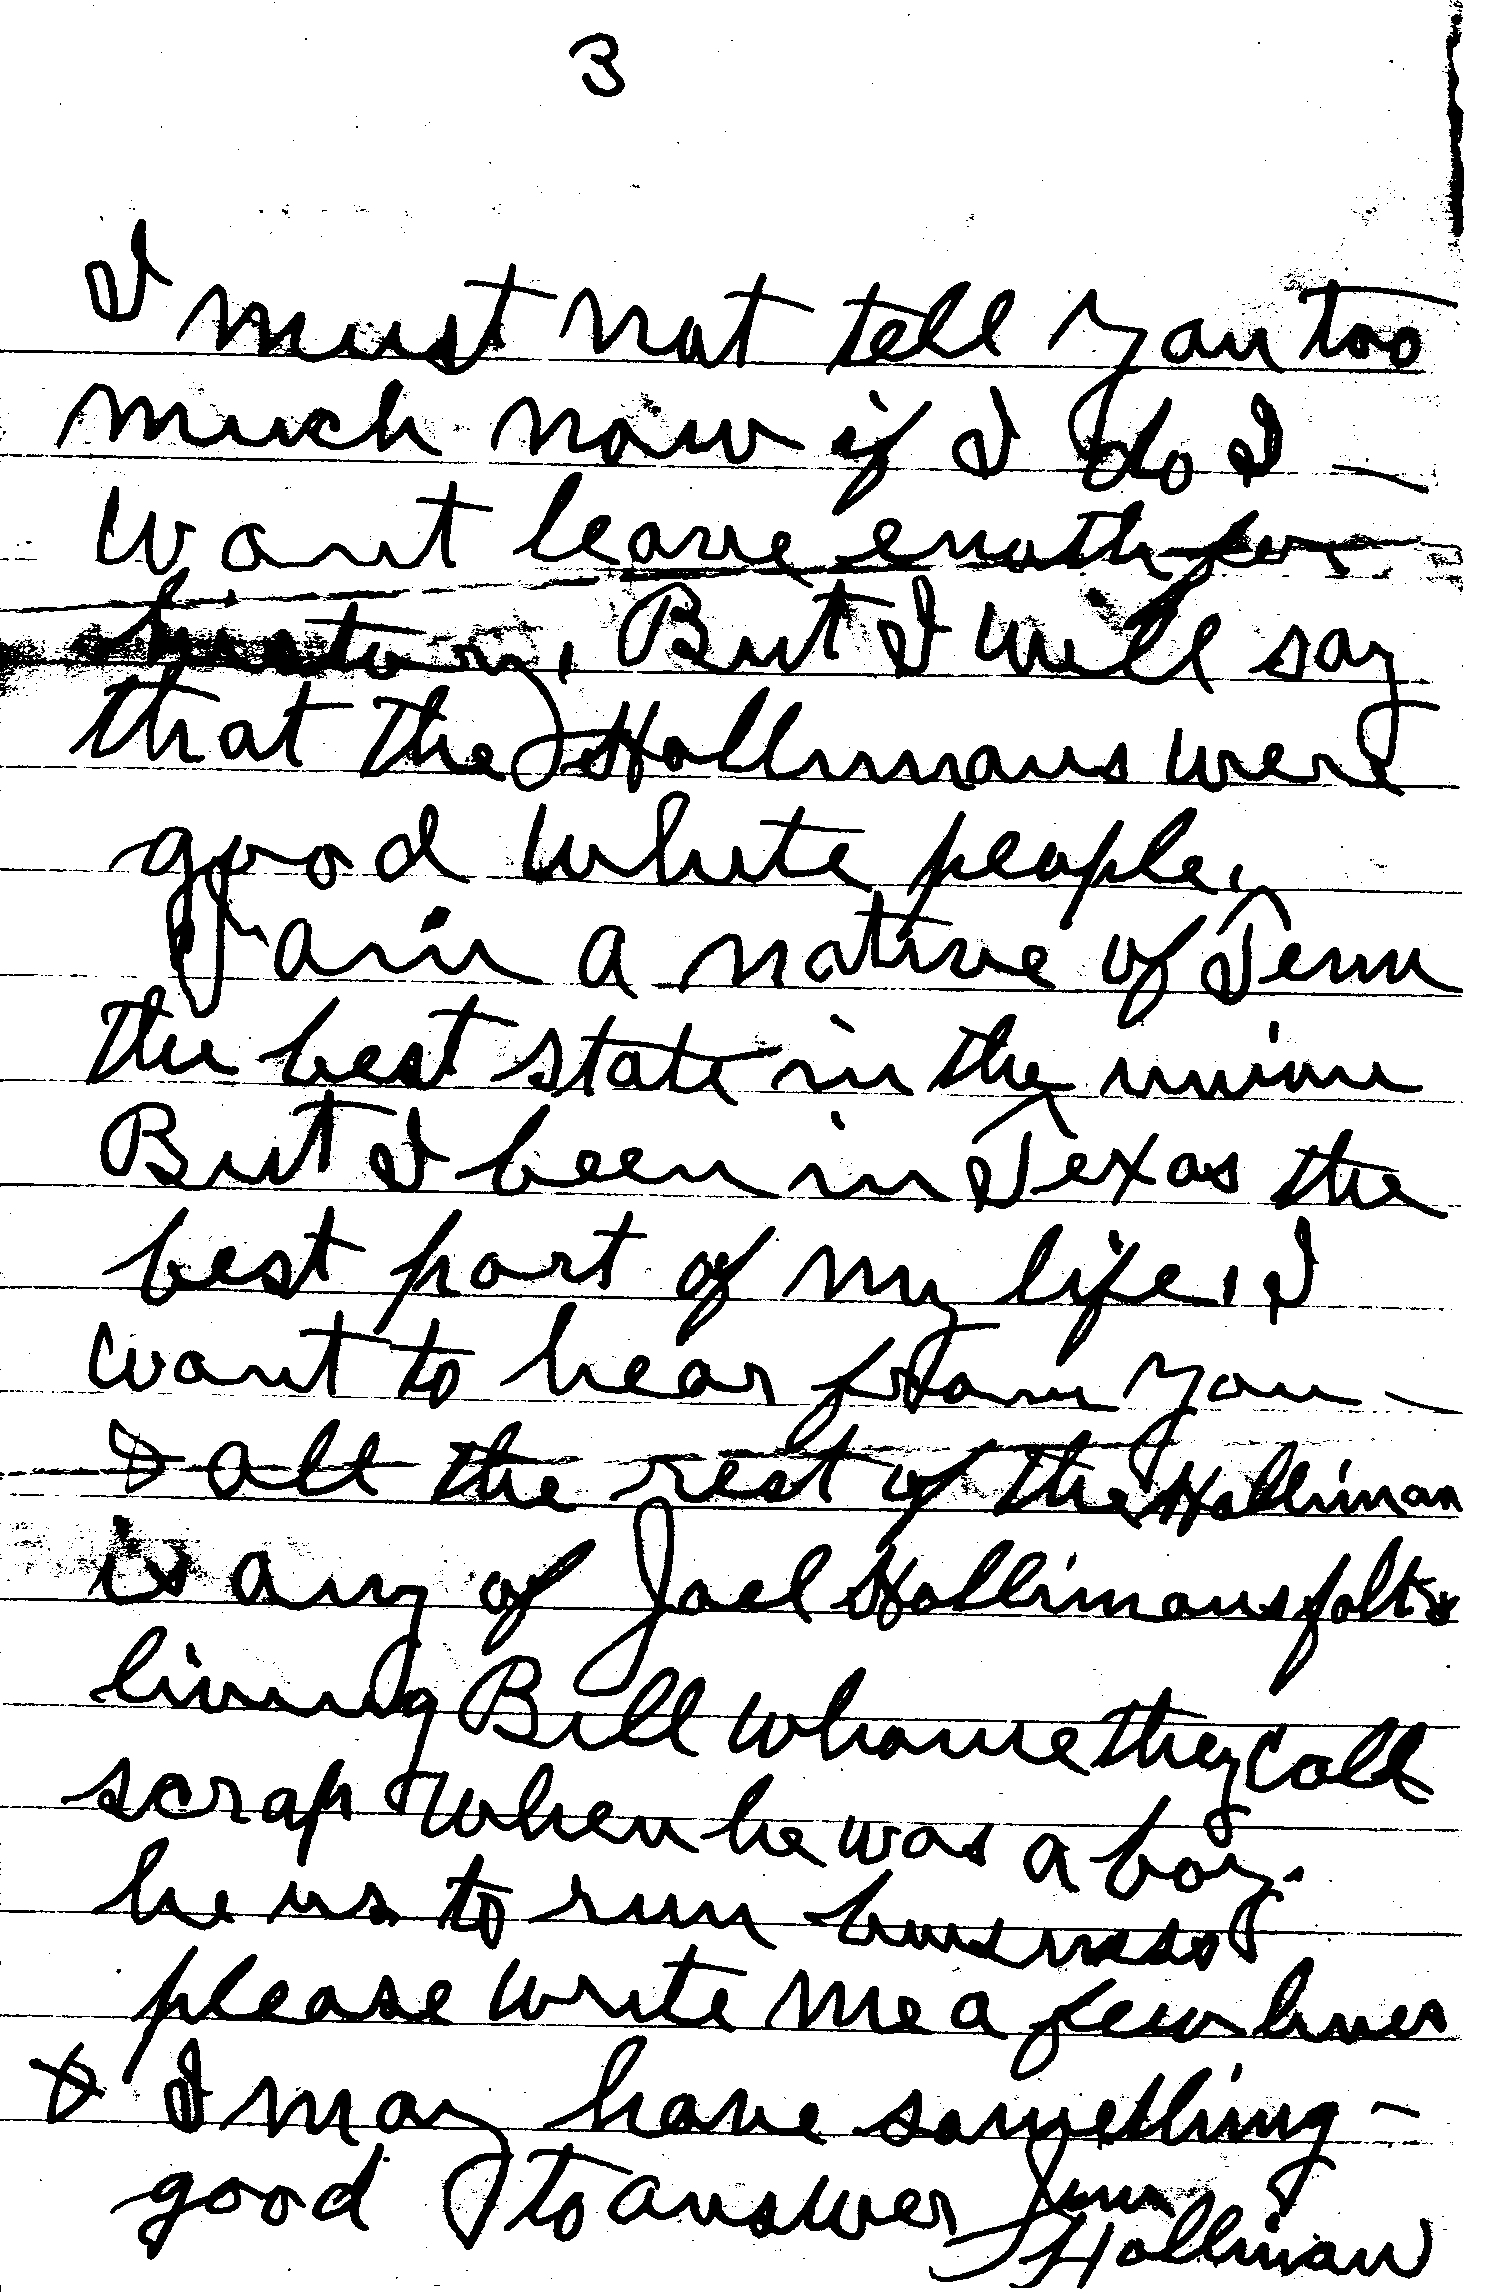 3
I must not tell you too
much now if I do I —
want leave enoth for
history. But I will say
that the Hollimans were
good white people.
I am a native of Tenn
the best state in the union
But I been in Texas the
best part of my life. I
want to hear from you —
& all the rest of the Holliman
is any of Joel Hollimans folks
living Bill whome they call
scrap when he was a boy.
he us to run business
please write me a few lines
& I may have something —
good to answer Jim
Holliman